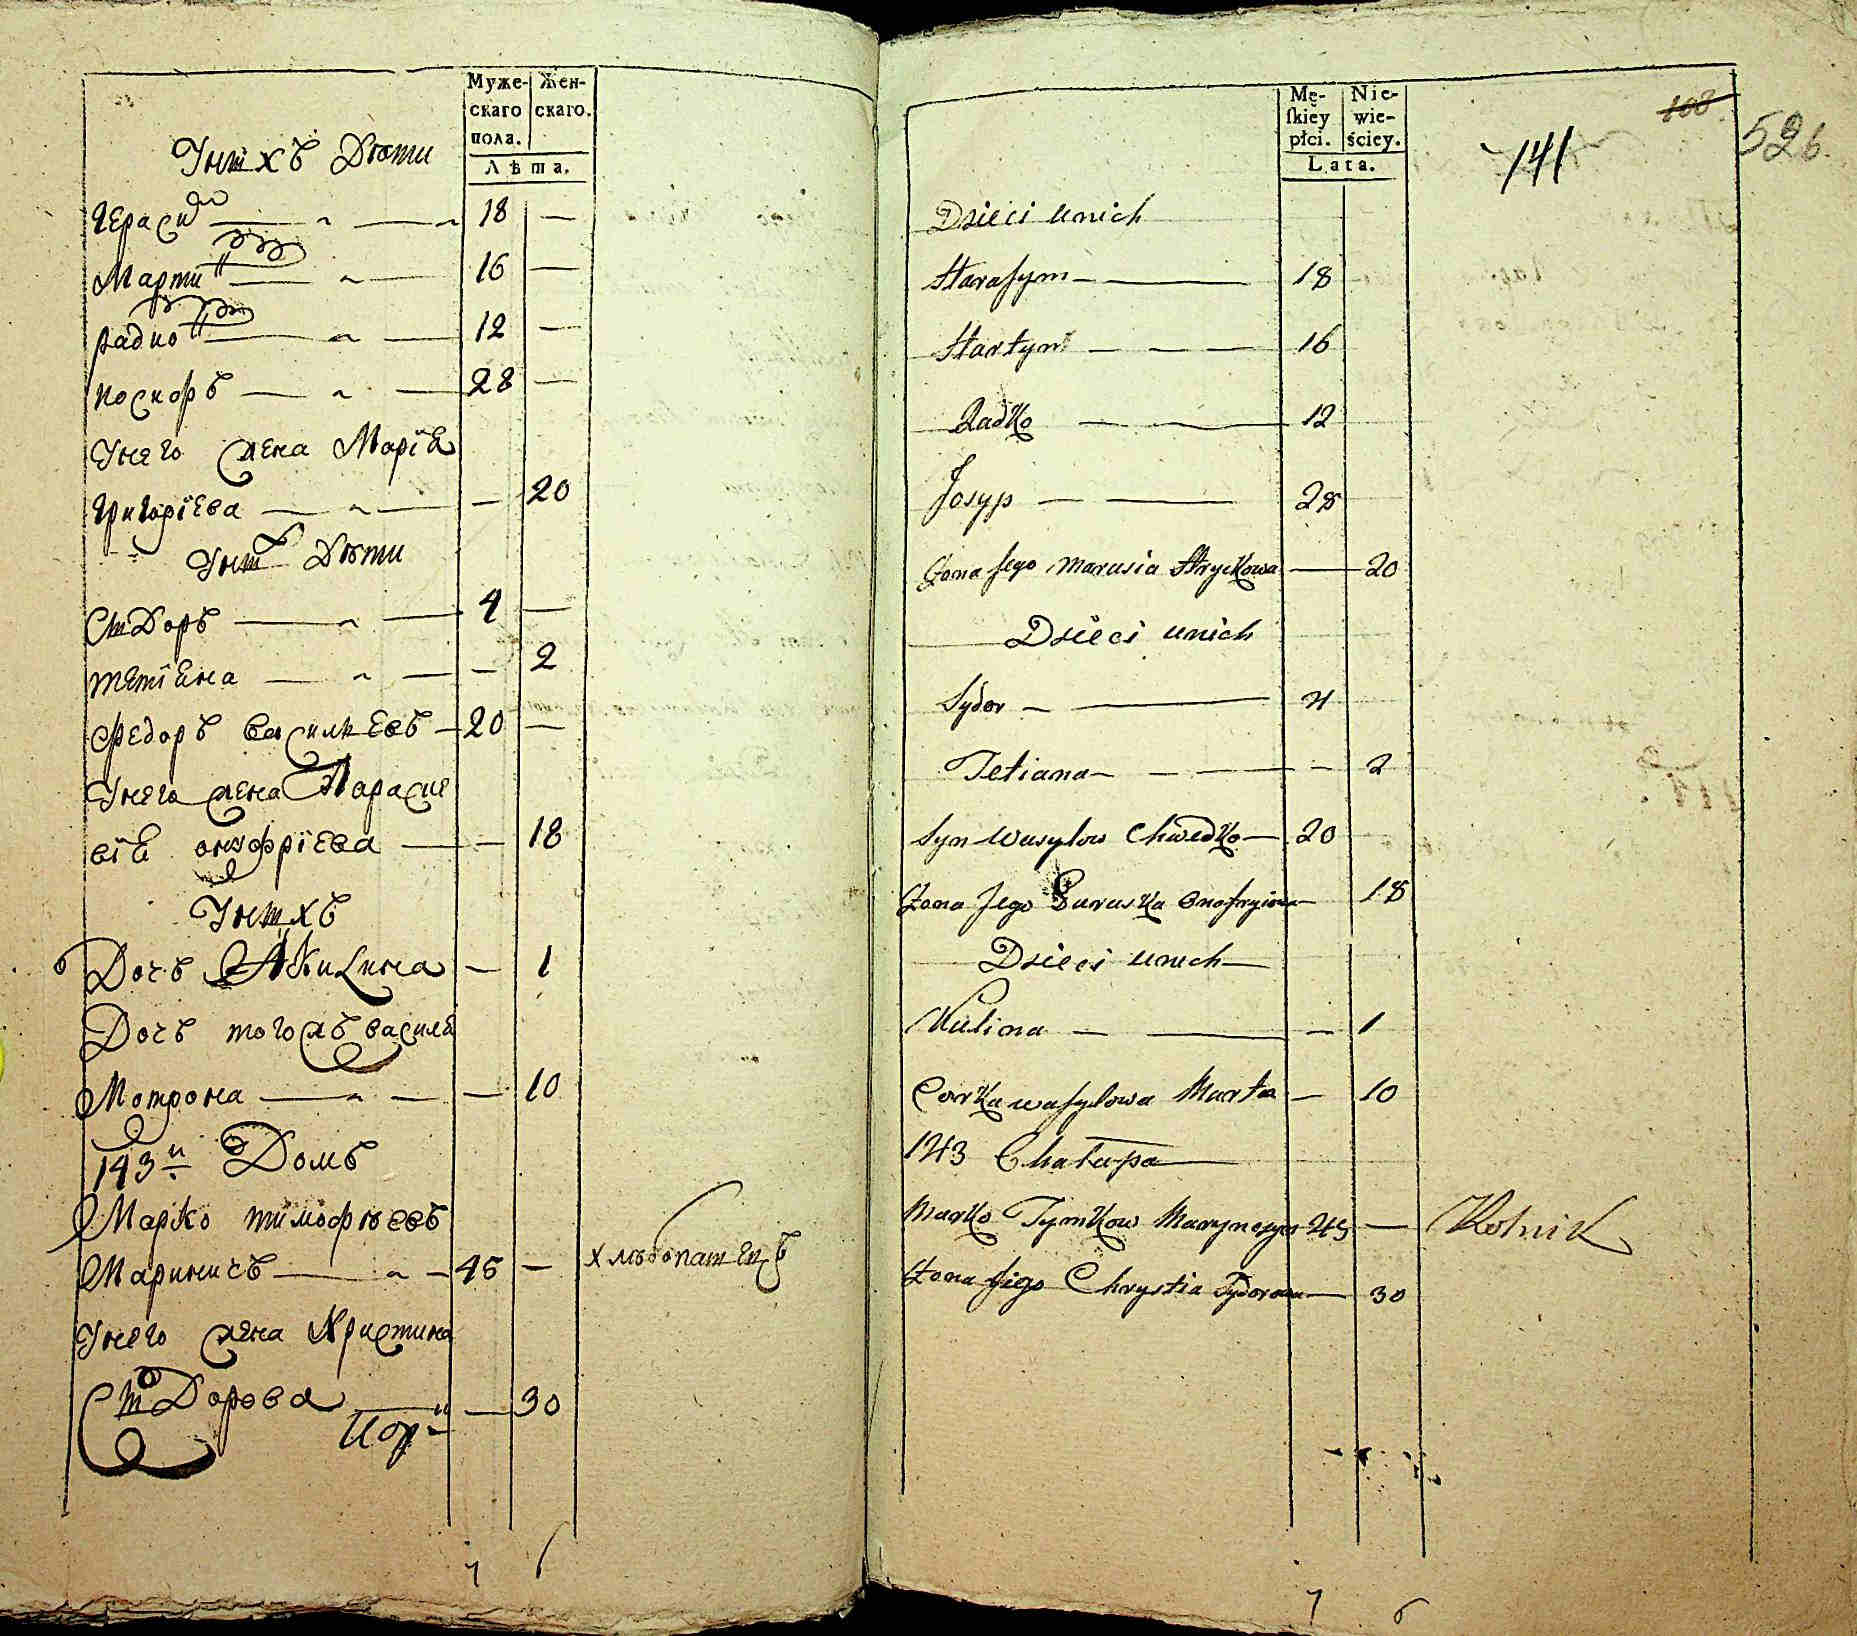 Муже-
скаго
пола.
Жен-
скаго.
Лѣта.
Унихъ Дѣти
Герасим — 18 —
Марти — 16 —
Радко — 12 —
иосифъ — 28 —
Унего жена Марія
Григоріева — — 20
Уних Дѣти
Сидоръ — 4 —
тетіяна — — 2
Федоръ васильевъ — 20 —
Унего жена Параске
вія онуфріева — — 18
Унихъ
Дочъ Акилина — 1
Дочъ тогожъ василя
Мотрона — — 10
143й Домъ
Марко тимофѣевъ
Мариничъ — 45 — хлѣбопашецъ
Унего жена Христина
Сидорова — 30
7 6
Mę-
ſkiey
płci.
Nie-
wie-
ściey.
Lata.
108
141
526.
Dzieci unich
Harasym — 18
Martyn — 16
Radko — 12
Josyp — 28
Żona Jego Marusia Hryckowa — 20
Dzieci unich
Sydor — 4
Tetiana — — 2
Syn Wasylow Chwedko — 20
Żona Jego Paraska Onofryiowa — 18
Dzieci unich
Kulina — — 1
Corka wasylowa Marta — 10
143 Chałupa
Marko Tymkow 45 — Rolnik
Żona Jego Chrystia Sydorowa — 30
7 6